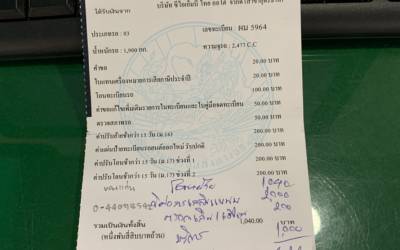 ได้รับเงินจาก บริษัท ซีไอเอ็มบี ไทย ออโต้ จำกัด
ประเภทรถ : 03 เลขทะเบียน : ผม 5964
น้ำหนักรถ : 1,900 กก. ความจุรถ : 2,477 C.C
ค่าขอ 20.00 บาท
ใบแทนเครื่องหมายการเสียภาษีประจำปี 20.00 บาท
โอนทะเบียนรถ 100.00 บาท
ค่าขอแก้ไขเพิ่มเติมรายการในทะเบียนและใบคู่มือจดทะเบียน 50.00 บาท
ตรวจสภาพรถ 50.00 บาท
ค่าปรับแจ้งช้ากว่า 15 วัน (ม.14) 200.00 บาท
ค่าแผ่นป้ายทะเบียนรถยนต์ออกใหม่ รับปกติ 200.00 บาท
ค่าปรับโอนช้ากว่า 15 วัน (ม.17) ช่วงที่ 1 200.00 บาท
ค่าปรับโอนช้ากว่า 15 วัน (ม.17) ช่วงที่ 2 200.00 บาท
ขอนแก่น 1040
2,000
200
รวมเป็นเงินทั้งสิ้น 1,040.00 บาท 1,000
(หนึ่งพันสี่สิบบาทถ้วน)